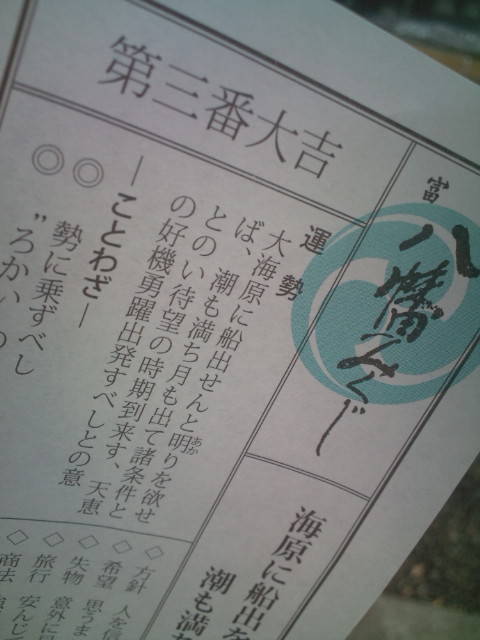 富
八幡みくじ
第三番大吉
海原に船出を
潮も満
運勢
大海原に船出せんと明りを欲せ
ば、潮も満ち月も出て諸条件と
とのい待望の時期到来す、天恵
の好機勇躍出発すべしとの意
―ことわざ―
◎勢に乗ずべし
◎〝ろかい
◇方針 人を信
◇希望 思うま
◇失物 意外に
◇旅行 安んじ
◇商法